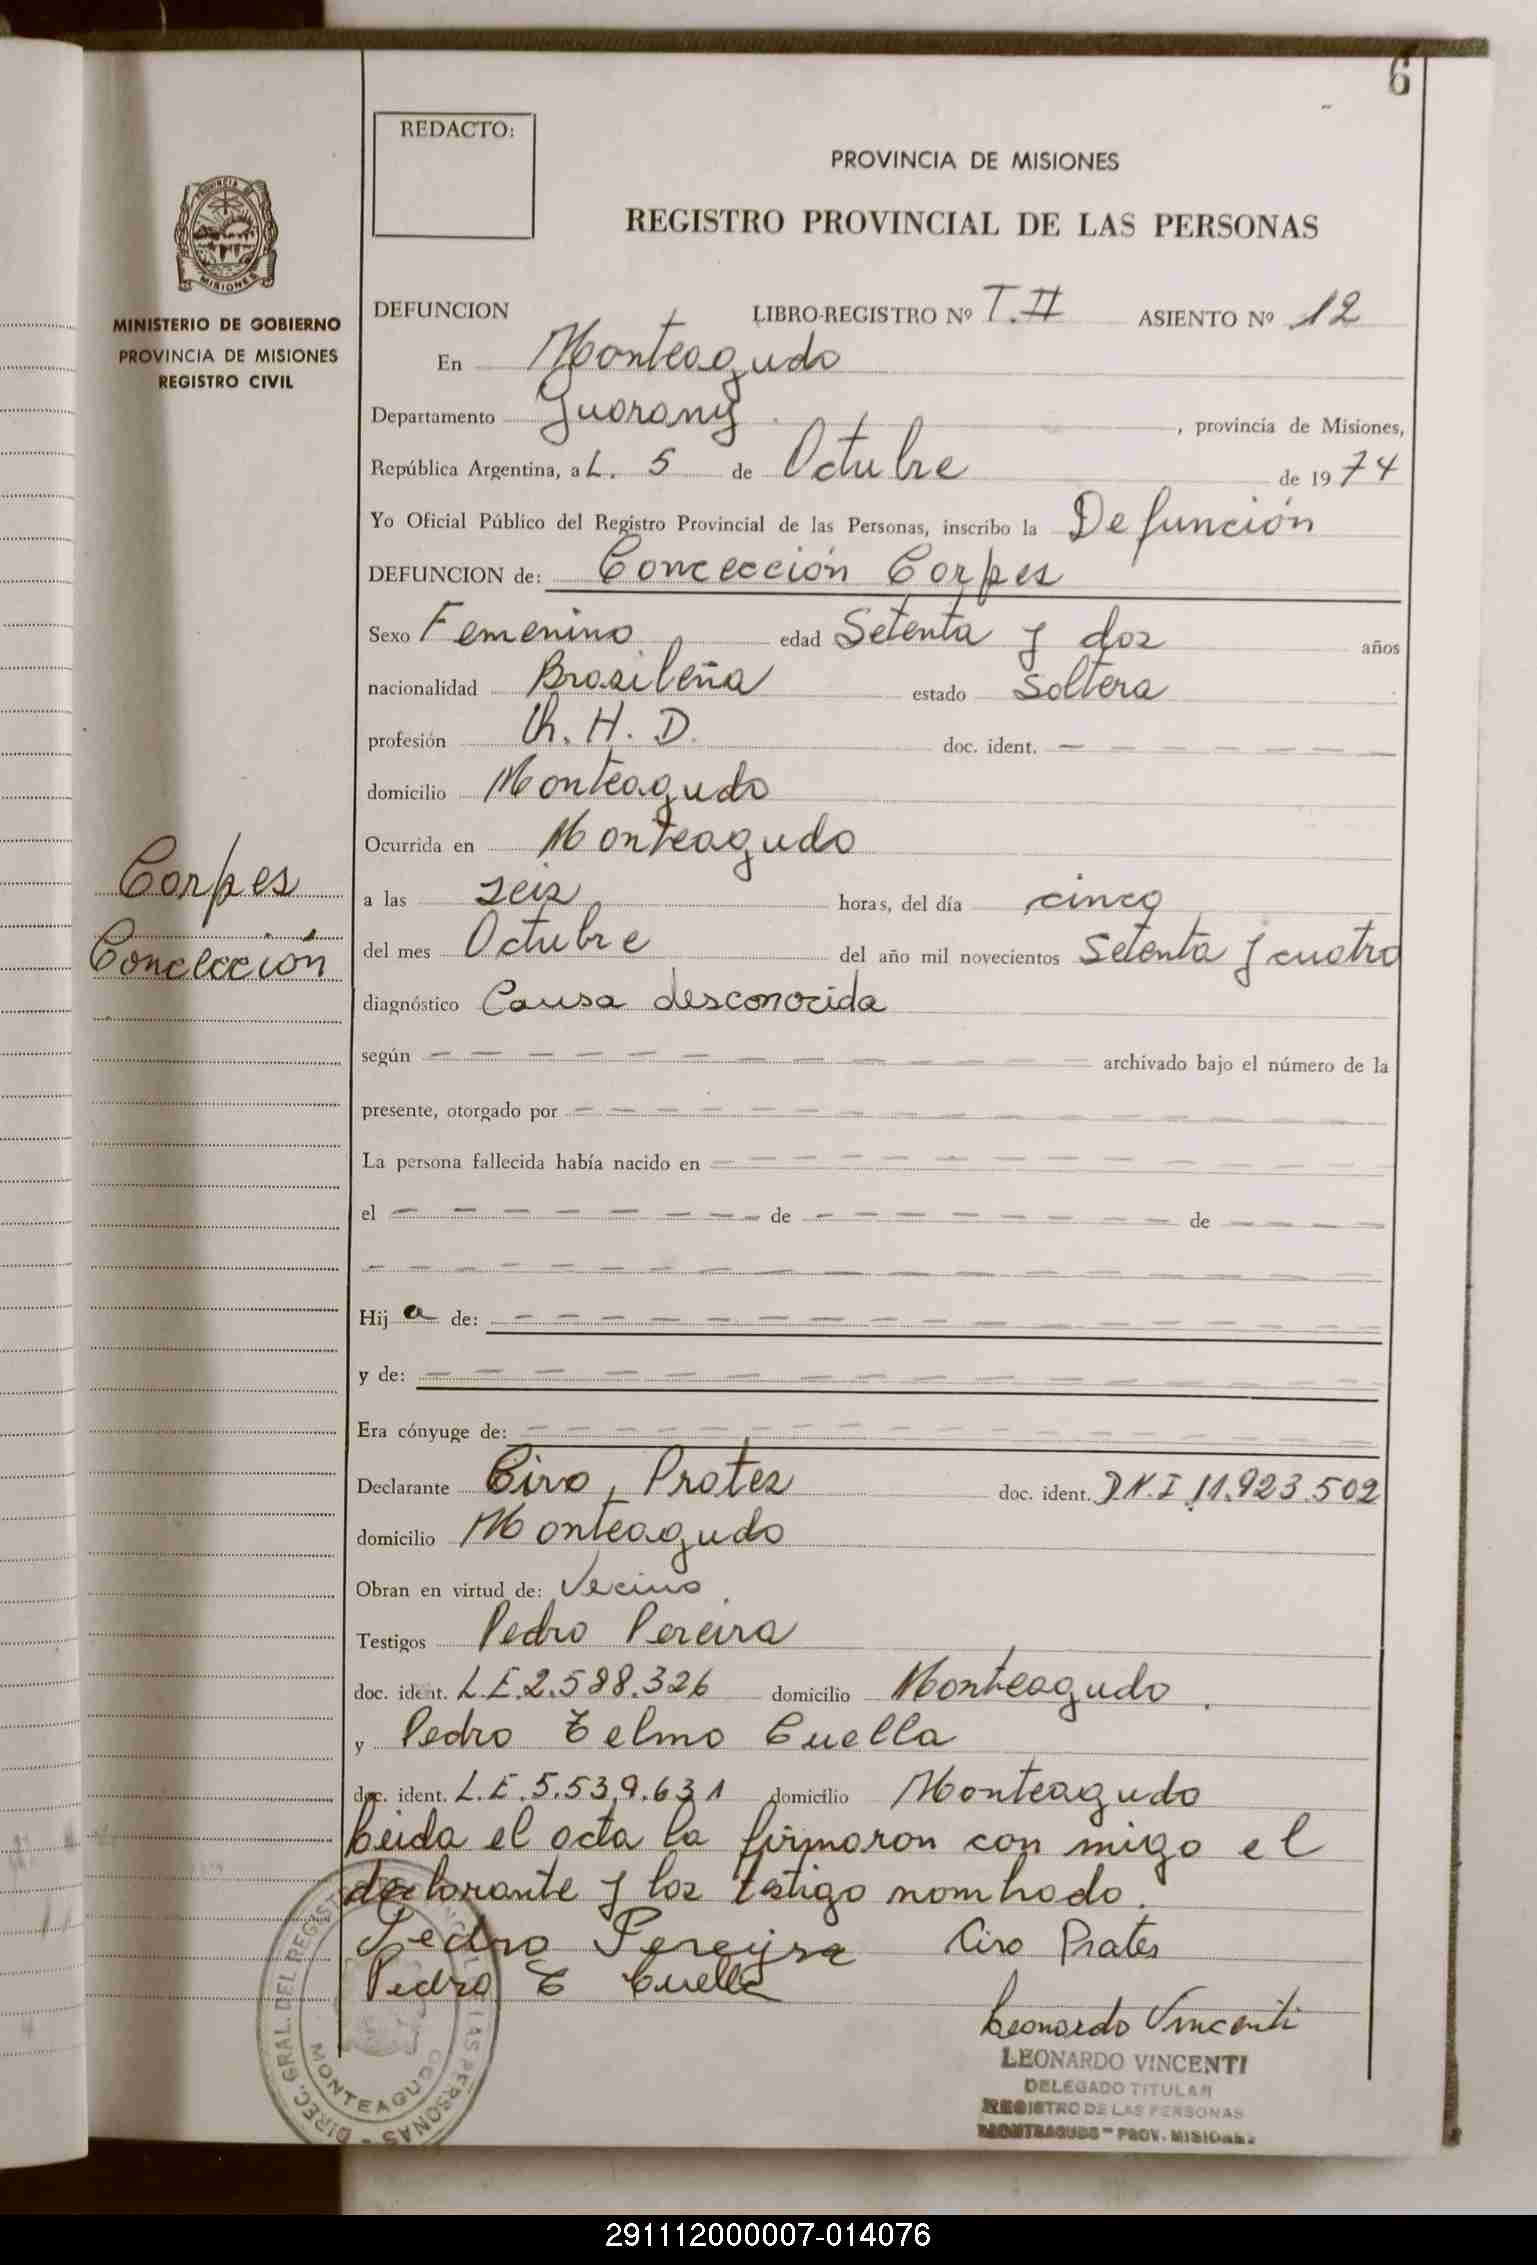 6
REDACTO:
PROVINCIA DE MISIONES
REGISTRO PROVINCIAL DE LAS PERSONAS
PROVINCIA DE
MISIONES
MINISTERIO DE GOBIERNO
PROVINCIA DE MISIONES
REGISTRO CIVIL
DEFUNCION LIBRO-REGISTRO Nº T.II ASIENTO Nº 12
En Monteagudo
Departamento Guarany , provincia de Misiones,
República Argentina, a L. 5 de Octubre de 1974
Yo Oficial Público del Registro Provincial de las Personas, inscribo la Defunción
DEFUNCION de: Concección Corpes
Sexo Femenino edad Setenta y dos años
nacionalidad Brasileña estado Soltera
profesión Q. H. D. doc. ident. —
domicilio Monteagudo
Ocurrida en Monteagudo
Corpes
Concección
a las seis horas, del día cinco
del mes Octubre del año mil novecientos Setenta y cuatro
diagnóstico Causa desconocida
según archivado bajo el número de la
presente, otorgado por
La persona fallecida había nacido en
el de de
Hija de:
y de:
Era cónyuge de:
Declarante Ciro, Prates doc. ident. D.N.I 11.923.502
domicilio Monteagudo
Obran en virtud de: Vecino
Testigos Pedro Pereira
doc. ident. L.E.2.588.326 domicilio Monteagudo.
y Pedro Telmo Cuella
doc. ident. L.E.5.539.631 domicilio Monteagudo
Leida el acta la firmaron con migo el
declarante y los testigo nombrado.
Pedro Pereyra Ciro Prates
Pedro T Cuella
Leonardo Vincenti
LEONARDO VINCENTI
DELEGADO TITULAR
REGISTRO DE LAS PERSONAS
MONTEAGUDO - PROV. MISIONES
DIREC. GRAL. DEL REGIST PROVINCIAL DE LAS PERSONAS -
MONTEAGUDO
291112000007-014076